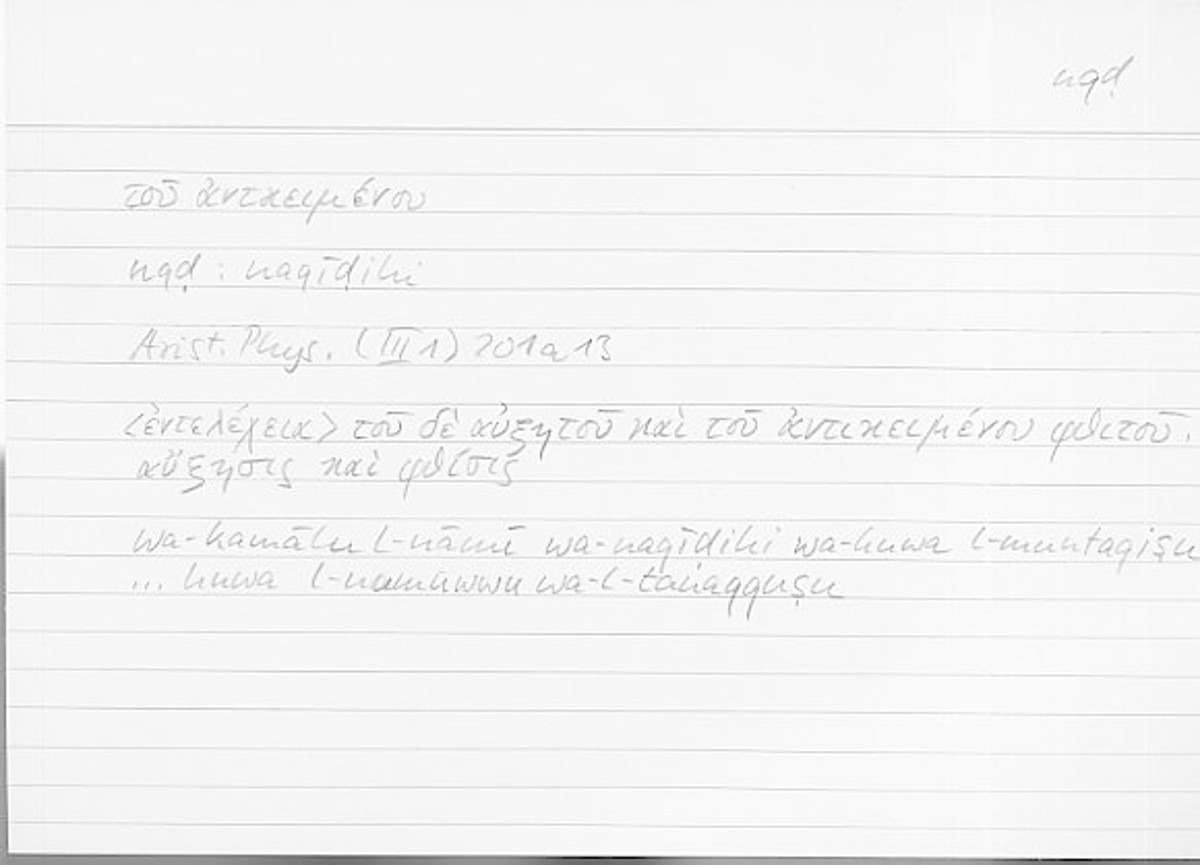 nqḍ
τοῦ ἀντικειμένου
nqḍ : naqīḍihi
Arist. Phys. (III 1) 201a13
<ἐντελέχεια> τοῦ δὲ αὐξητοῦ καὶ τοῦ ἀντικειμένου φθιτοῦ.
αὔξησις καὶ φθίσις
wa-kamālu l-nāmī wa-naqīḍihi wa-huwa l-muntaqiṣu
... huwa l-numūwwu wa-l-tanaqquṣu